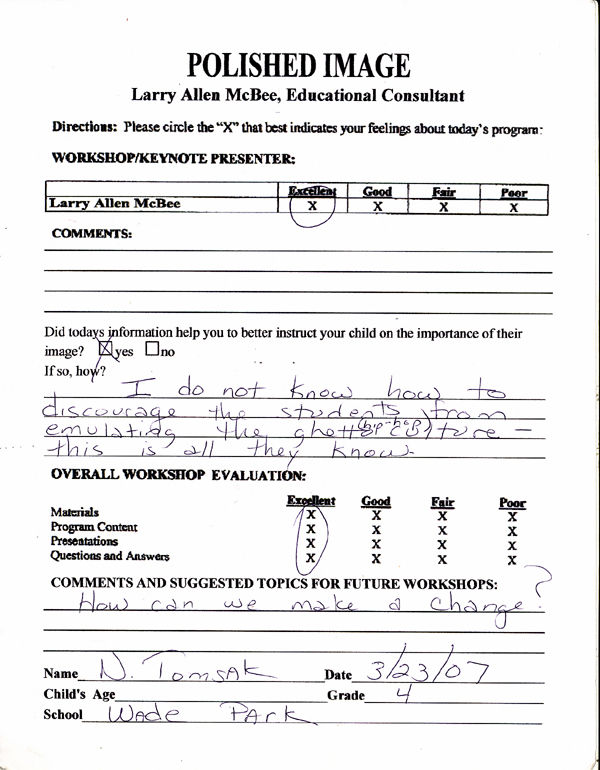 POLISHED IMAGE
Larry Allen McBee, Educational Consultant
Directions: Please circle the "X" that best indicates your feelings about today's program:
WORKSHOP/KEYNOTE PRESENTER:
Excellent Good Fair Poor
Larry Allen McBee X X X X
COMMENTS:
Did todays information help you to better instruct your child on the importance of their
image? ☒yes ☐no
If so, how?
I do not know how to
discourage the students from
emulating the ghetto (hip-hop) culture –
this is all they know.
OVERALL WORKSHOP EVALUATION:
Excellent Good Fair Poor
Materials X X X X
Program Content X X X X
Presentations X X X X
Questions and Answers X X X X
COMMENTS AND SUGGESTED TOPICS FOR FUTURE WORKSHOPS:
How can we make a change?
Name N. Tomsak Date 3/23/07
Child's Age Grade 4
School Wade Park